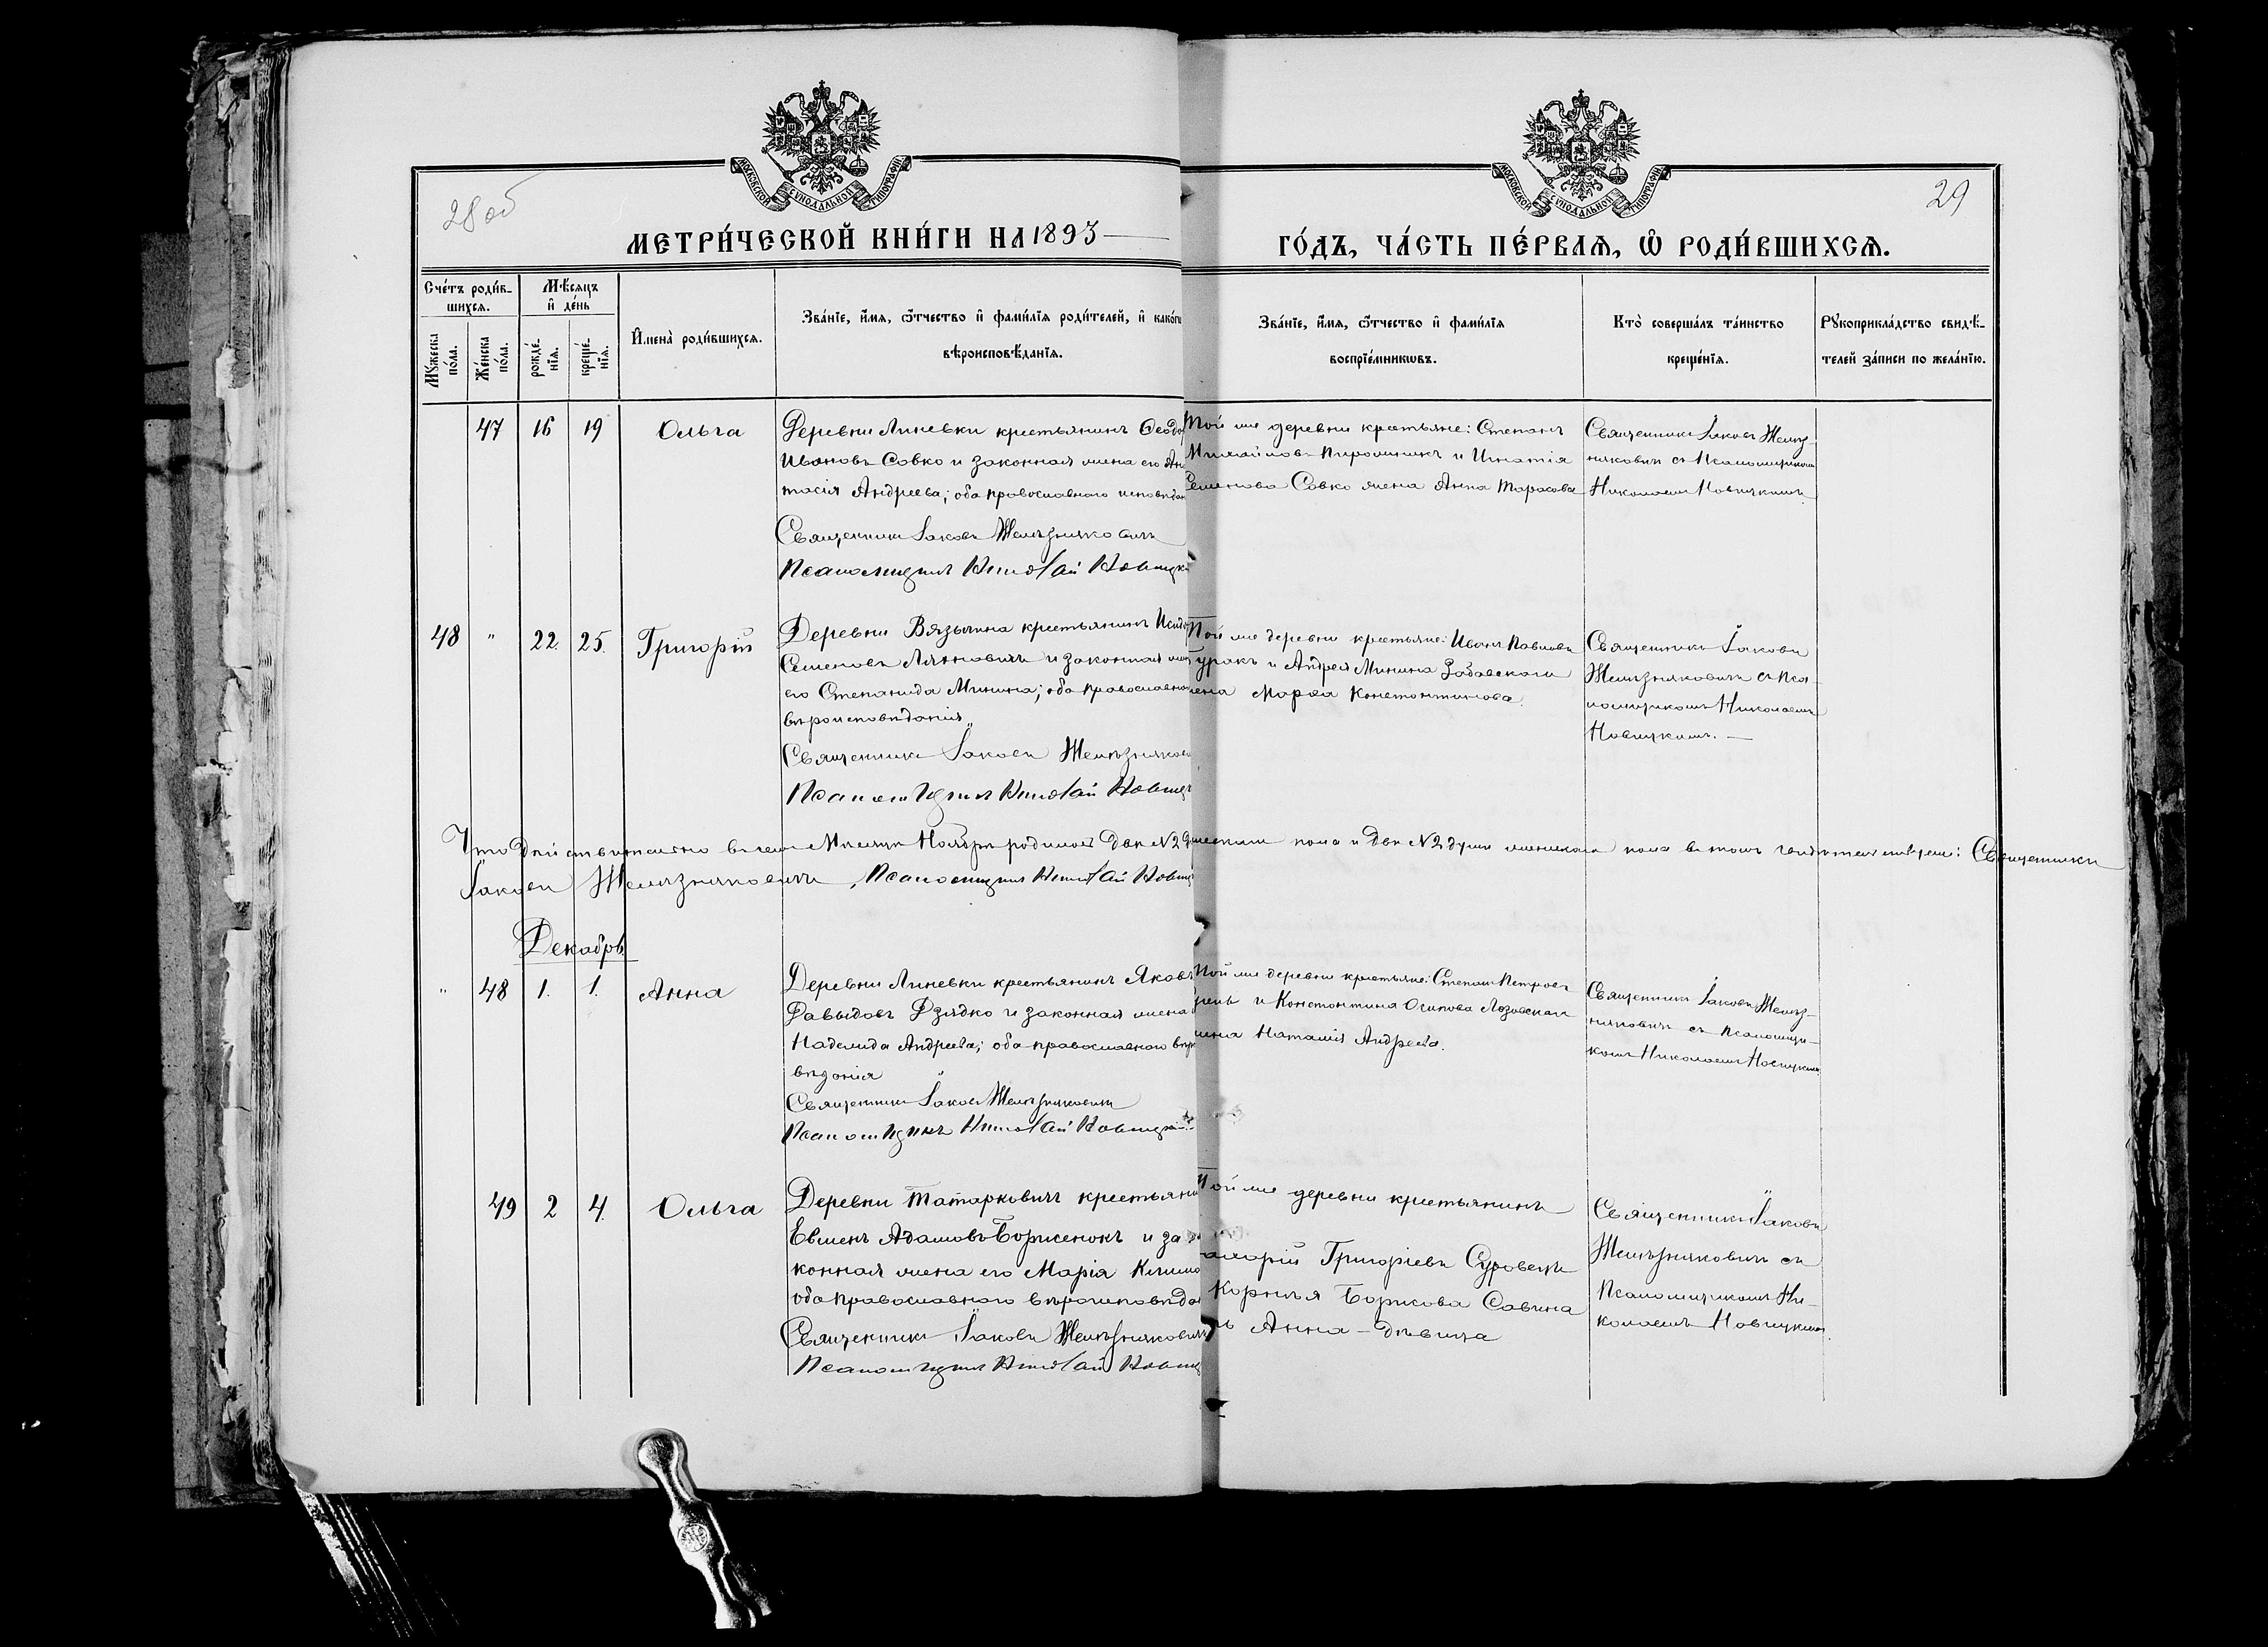 МОСКОВСКОЙ СУНОДАЛЬНОЙ ТИПОГРАФІИ
МОСКОВСКОЙ СУНОДАЛЬНОЙ ТИПОГРАФІИ
28 об
29
МЕТРИ́ЧЕСКОЙ КНИ́ГИ НА 1893
ГО́ДЪ, ЧА́СТЬ ПЕ́РВАѦ, Ѡ РОДИ́ВШИХСѦ.
Сче́тъ роди́в-
шихсѧ.
Мꙋ́жеска по́ла.
Же́нска по́ла.
Мѣ́сѧцъ
и де́нь
рожде́-
нїѧ.
креще́-
нїѧ.
И҆мена̀ роди́вшихсѧ.
Зва́нїе, и҆́мѧ, ѻ҆́тчество и҆ фами́лїѧ роди́телей, и҆ како́гѡ
вѣроисповѣ́данїѧ.
Зва́нїе, и҆́мѧ, ѻ҆́тчество и҆ фами́лїѧ
воспрїе́мникѡвъ.
Кто̀ соверша́лъ та́инство
креще́нїѧ.
Рꙋкоприкла́дство свидѣ́-
телей за́писи по жела́нїю.
47 16 19 Ольга
Деревни Линевки крестьянинъ Ѳеодо
Ивановъ Совко и законная жена его Ан
тасія Андреева; оба православного исповѣдан
Священникъ Іаковъ Желѣзняковичъ
Псаломщикъ Николай Новицк
Той же деревни крестьяне: Степанъ
Михайловъ и Игнатія
Семенова Совко жена Анна Тарасова
Священникъ Іаковъ Желѣз-
няковичъ съ Псаломщикомъ
Николаемъ Новицкимъ
48 " 22. 25. Григорій
Деревни Вязычина крестьянинъ Исидо
Семеновъ и законная жен
его Степанида Минина; оба православно
вѣроисповѣданія
Священникъ Іаковъ Желѣзняков
Псаломщикъ Николай Новиц
Той же деревни крестьяне: Иванъ Павловъ
Гуракъ и Андрея Минина
жена Марѳа Константинова.
Священникъ Іаковъ
Желѣзняковичъ съ Пса-
ломщикомъ Николаемъ
Новицкимъ. —
Что дѣйствительно въ семъ Мѣсяцѣ Ноябрѣ родилось два №2 мужескаго пола и двѣ №2 души женскаго пола въ томъ свидѣтельствуемъ: Священникъ
Іаковъ Желѣзняковичъ, Псаломщикъ Николай Новиц
Декабрь
" 48 1. 1. Анна
Деревни Линевки крестьянинъ Яковъ
Давыдовъ Дзядко и законная жена
Надежда Андреева; оба православного вѣро
вѣданія
Священникъ Іаковъ Желѣзняковичъ
Псаломщикъ Николай Новицкій
Той же деревни крестьяне: Степанъ Петровъ
и Константина Осипова Лозовскаго
жена Наталія Андреева.
Священникъ Іаковъ Желѣз-
няковичъ съ Псаломщи-
комъ Николаемъ Новицкимъ
49 2 4. Ольга
Деревни Татарковичъ крестьяни
Евменъ Адамовъ Борисенокъ и за
конная жена его Марія Климо
оба православного вѣроисповѣда
Священникъ Іаковъ Желѣзняковичъ
Псаломщикъ Николай Новиц
Той же деревни крестьянинъ
Григоріевъ Суровецъ
Корнѣя Борисова Савина
Анна - дѣвица
Священникъ Іаковъ
Желѣзняковичъ съ
Псаломщикомъ Ни-
колаемъ Новицкимъ.